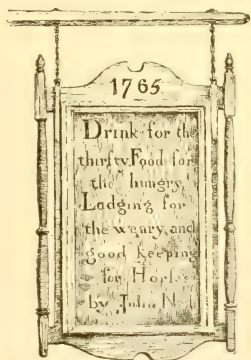 1765
Drink for the
thirsty, Food for
the hungry
Lodging for
the weary, and
good Keeping
for Horses
by John